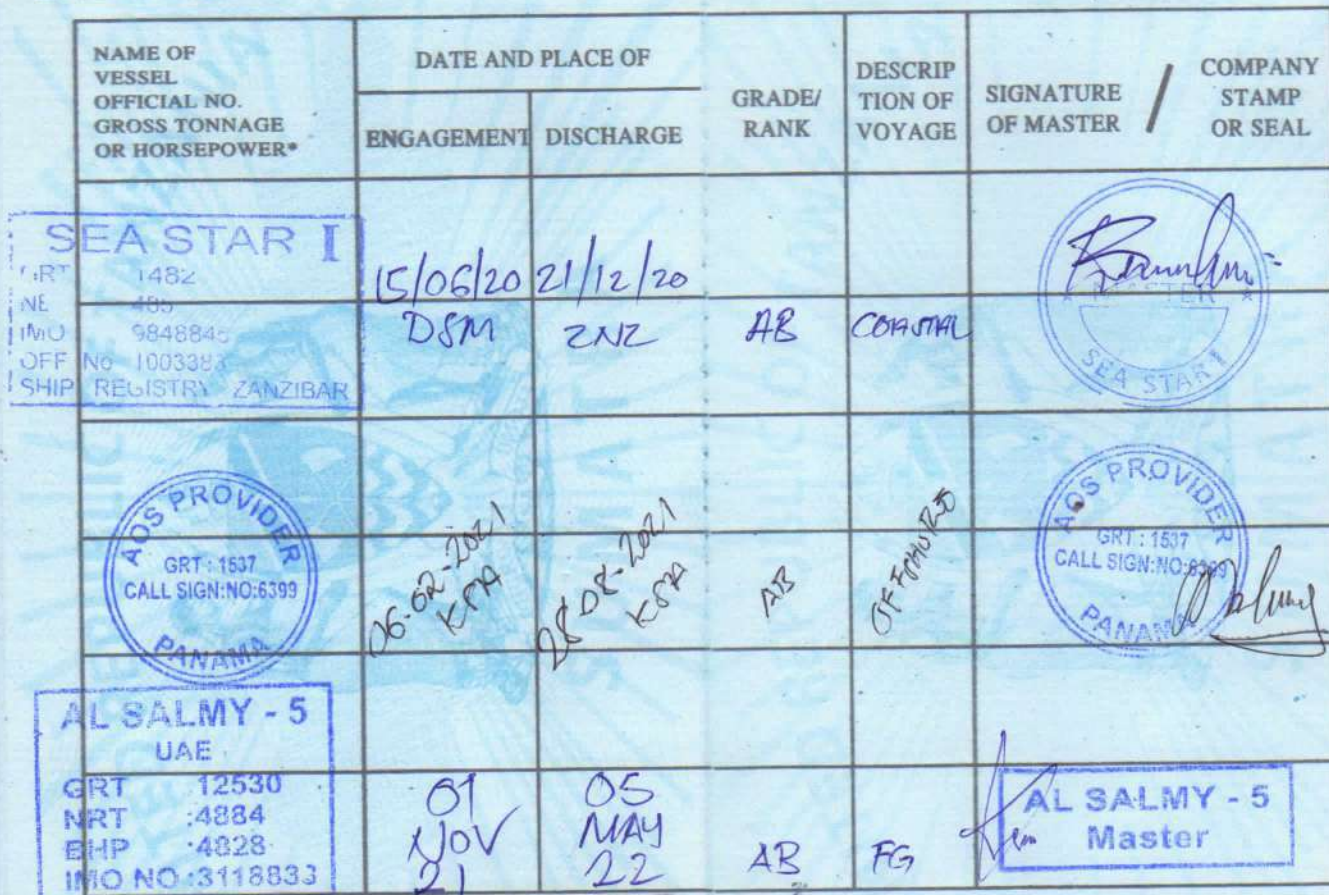 NAME OF
VESSEL
OFFICIAL NO.
GROSS TONNAGE
OR HORSEPOWER*
DATE AND PLACE OF
ENGAGEMENT
DISCHARGE
GRADE/
RANK
DESCRIP
TION OF
VOYAGE
SIGNATURE
OF MASTER
/
COMPANY
STAMP
OR SEAL
SEA STAR I
GRT 1482
IMO
OFF No
SHIP REGISTRY ZANZIBAR
15/06/20
DSM
21/12/20
ZNZ
AB
COASTAL
MASTER
SEA STAR I
AOS PROVIDER
GRT : 1537
CALL SIGN:NO:6399
PANAMA
06-02-2021
28-08-2021
AB
OFFSHORE
AOS PROVIDER
GRT : 1537
CALL SIGN:NO:6399
PANAMA
AL SALMY - 5
UAE
GRT :12530
NRT :4884
BHP :4828
IMO NO :3118833
01
NOV
21
05
MAY
22
AB
FG
AL SALMY - 5
Master